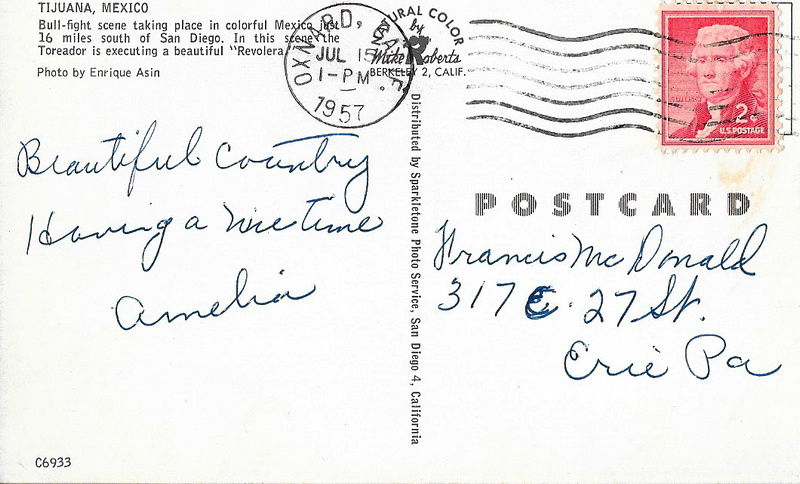 TIJUANA, MEXICO
Bull-fight scene taking place in colorful Mexico just
16 miles south of San Diego. In this scene the
Toreador is executing a beautiful "Revolera."
Photo by Enrique Asin
OXNARD, CALIF.
JUL 15
1-PM
1957
NATURAL COLOR
by
Mike Roberts
BERKELEY 2, CALIF.
2¢
U.S. POSTAGE
Distributed by Sparkletone Photo Service, San Diego 4, California
POSTCARD
Beautiful Country
Having a nice time
Amelia
Francis McDonald
317 E. 27 St.
Erie Pa
C6933